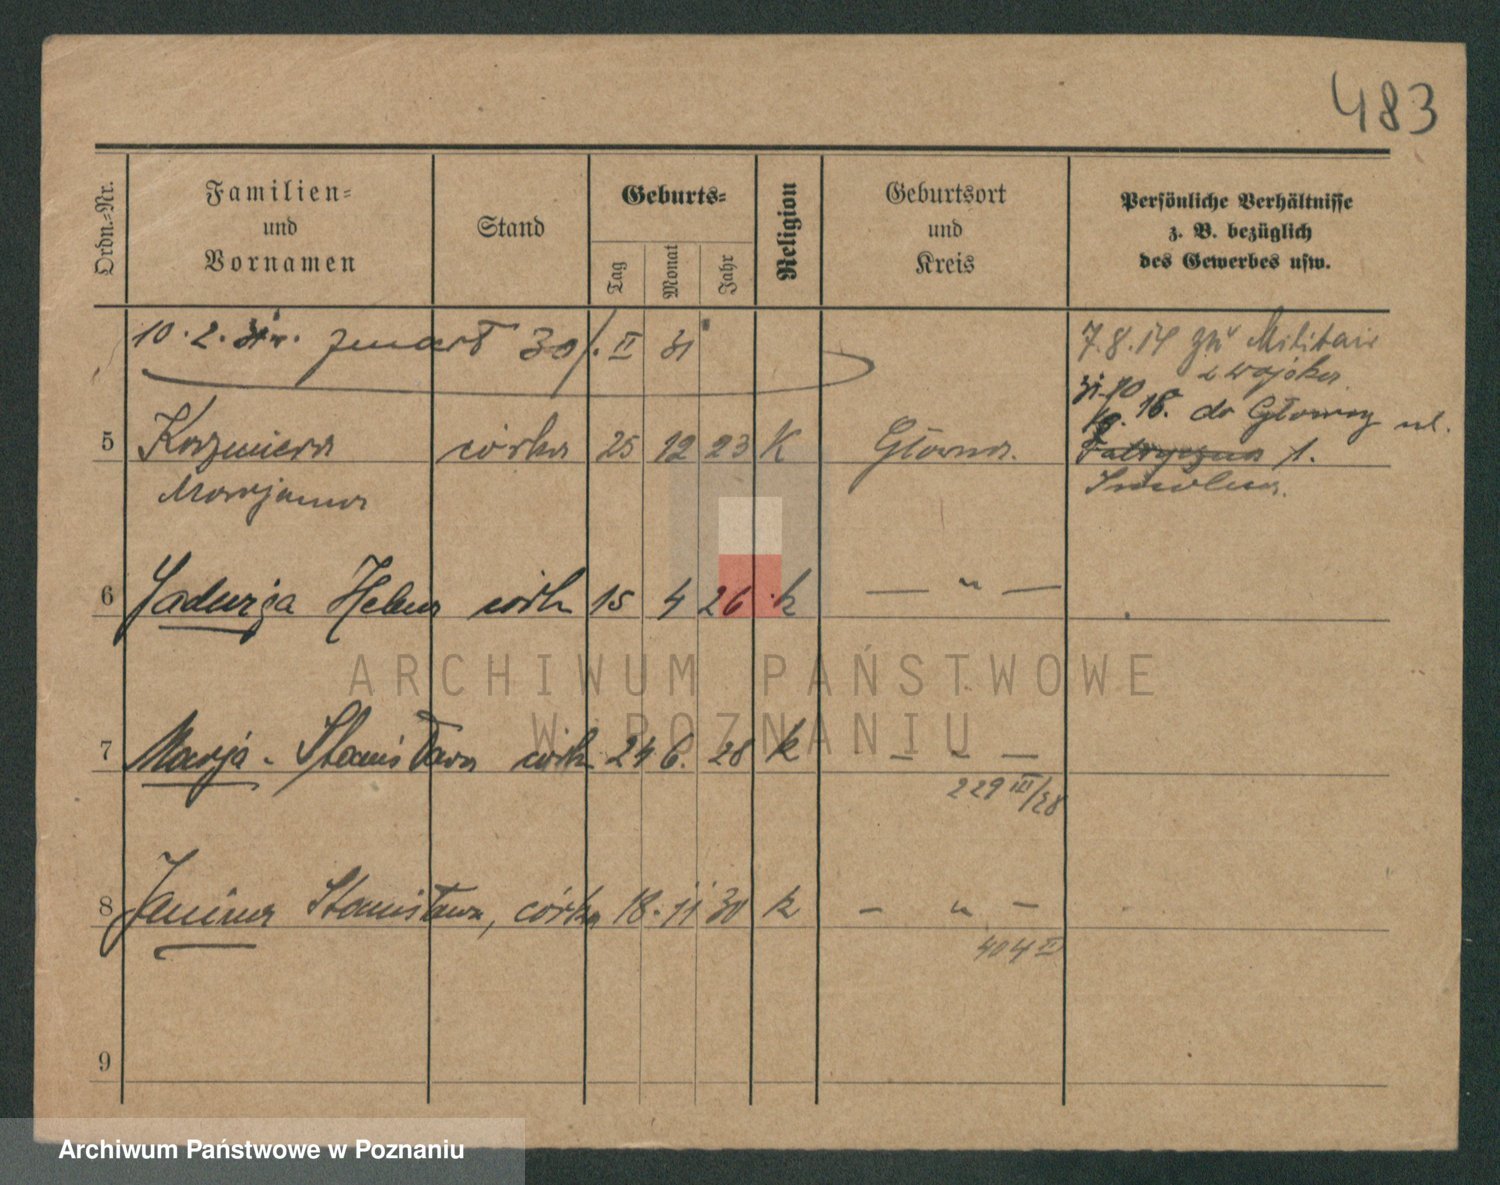 483
Ordn.-Nr.
Familien-
und
Vornamen
Stand
Geburts-
Tag
Monat
Jahr
Religion
Geburtsort
und
Kreis
Persönliche Verhältnisse
z. B. bezüglich
des Gewerbes usw.
10. 2. zmarł 30/. II 31
7.8.14 zu Militair
z wojska
do Główny ul.
Fabryczna 1.
Smolna.
5 Kazmiera córka 25 12 23 K Główna.
Marjanna
6 Jadwiga Helena córk 15 4 26 k — " —
ARCHIWUM PAŃSTWOWE
W POZNANIU
7 Marja - Stanisława córk 24 6. 28 k — " —
229 III/28
8 Janina Stanisława, córka 18. 11 30 k — " —
404 II
9
Archiwum Państwowe w Poznaniu